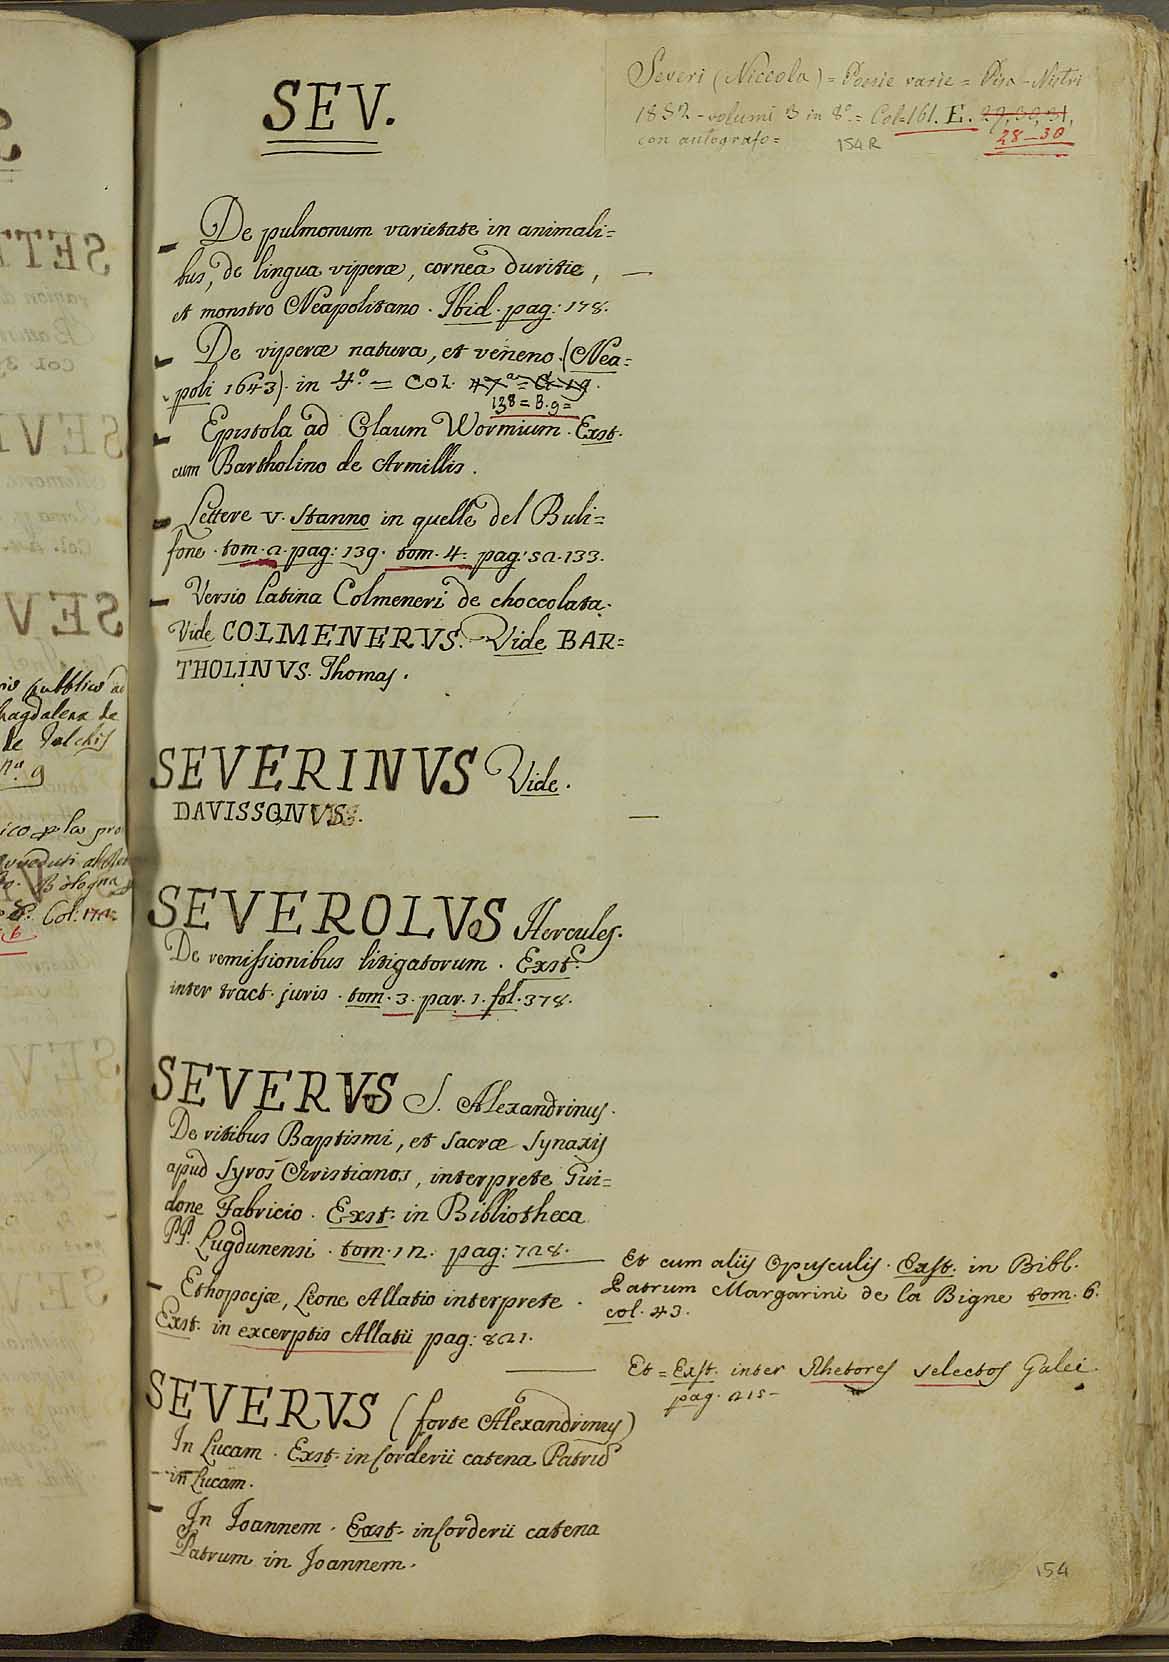 SEV.
Severi (Niccola) = Poesie varie = Pisa - Nistri
1832 - volumi 3 in 8º = Col=161. E. 29,30,31,
28-30
con autografo=
154R
De pulmonum varietate in animali=
bus, de lingua viperæ, cornea duritie,
et monstro Neapolitano. Ibid. pag: 178.
De viperæ natura, et veneno. (Nea=
poli 1643). in 4º = COL. 47ª= G. 19.
138= B. 9=
Epistola ad Olaum Wormium. Exst.
cum Bartholino de Armillis.
Lettere v. stanno in quelle del Buli=
fone. tom. 2. pag: 139. tom. 4: pag: 52. 133.
Versio latina Colmeneri de choccolata.
Vide COLMENERVS. Vide BAR=
THOLINVS. Thomas.
SEVERINVS Vide.
DAVISSONVS.
SEVEROLVS Hercules.
De remissionibus litigatorum. Exst.
inter tract. juris. tom. 3. par. 1. fol. 378.
SEVERVS S. Alexandrinus.
De ritibus Baptismi, et sacræ synaxis
apud syros Christianos, interprete Gui=
done Fabricio. Exst: in Bibliotheca
PP. Lugdunensi. tom. 12. pag: 728.
Et cum aliis Opusculis. Exst. in Bibl.
Patrum Margarini de la Bigne tom. 6.
col. 43.
Ethopoejæ, Leone Allatio interprete.
Exst. in excerptis Allatii pag: 221.
Et = Exst. inter Rhetores selectos Galei.
pag. 215-
SEVERVS (forte Alexandrinus)
In Lucam. Exst: in Corderii catena Patrũ
in Lucam.
In Joannem. Exst: in Corderii catena
Patrum in Joannem.
154